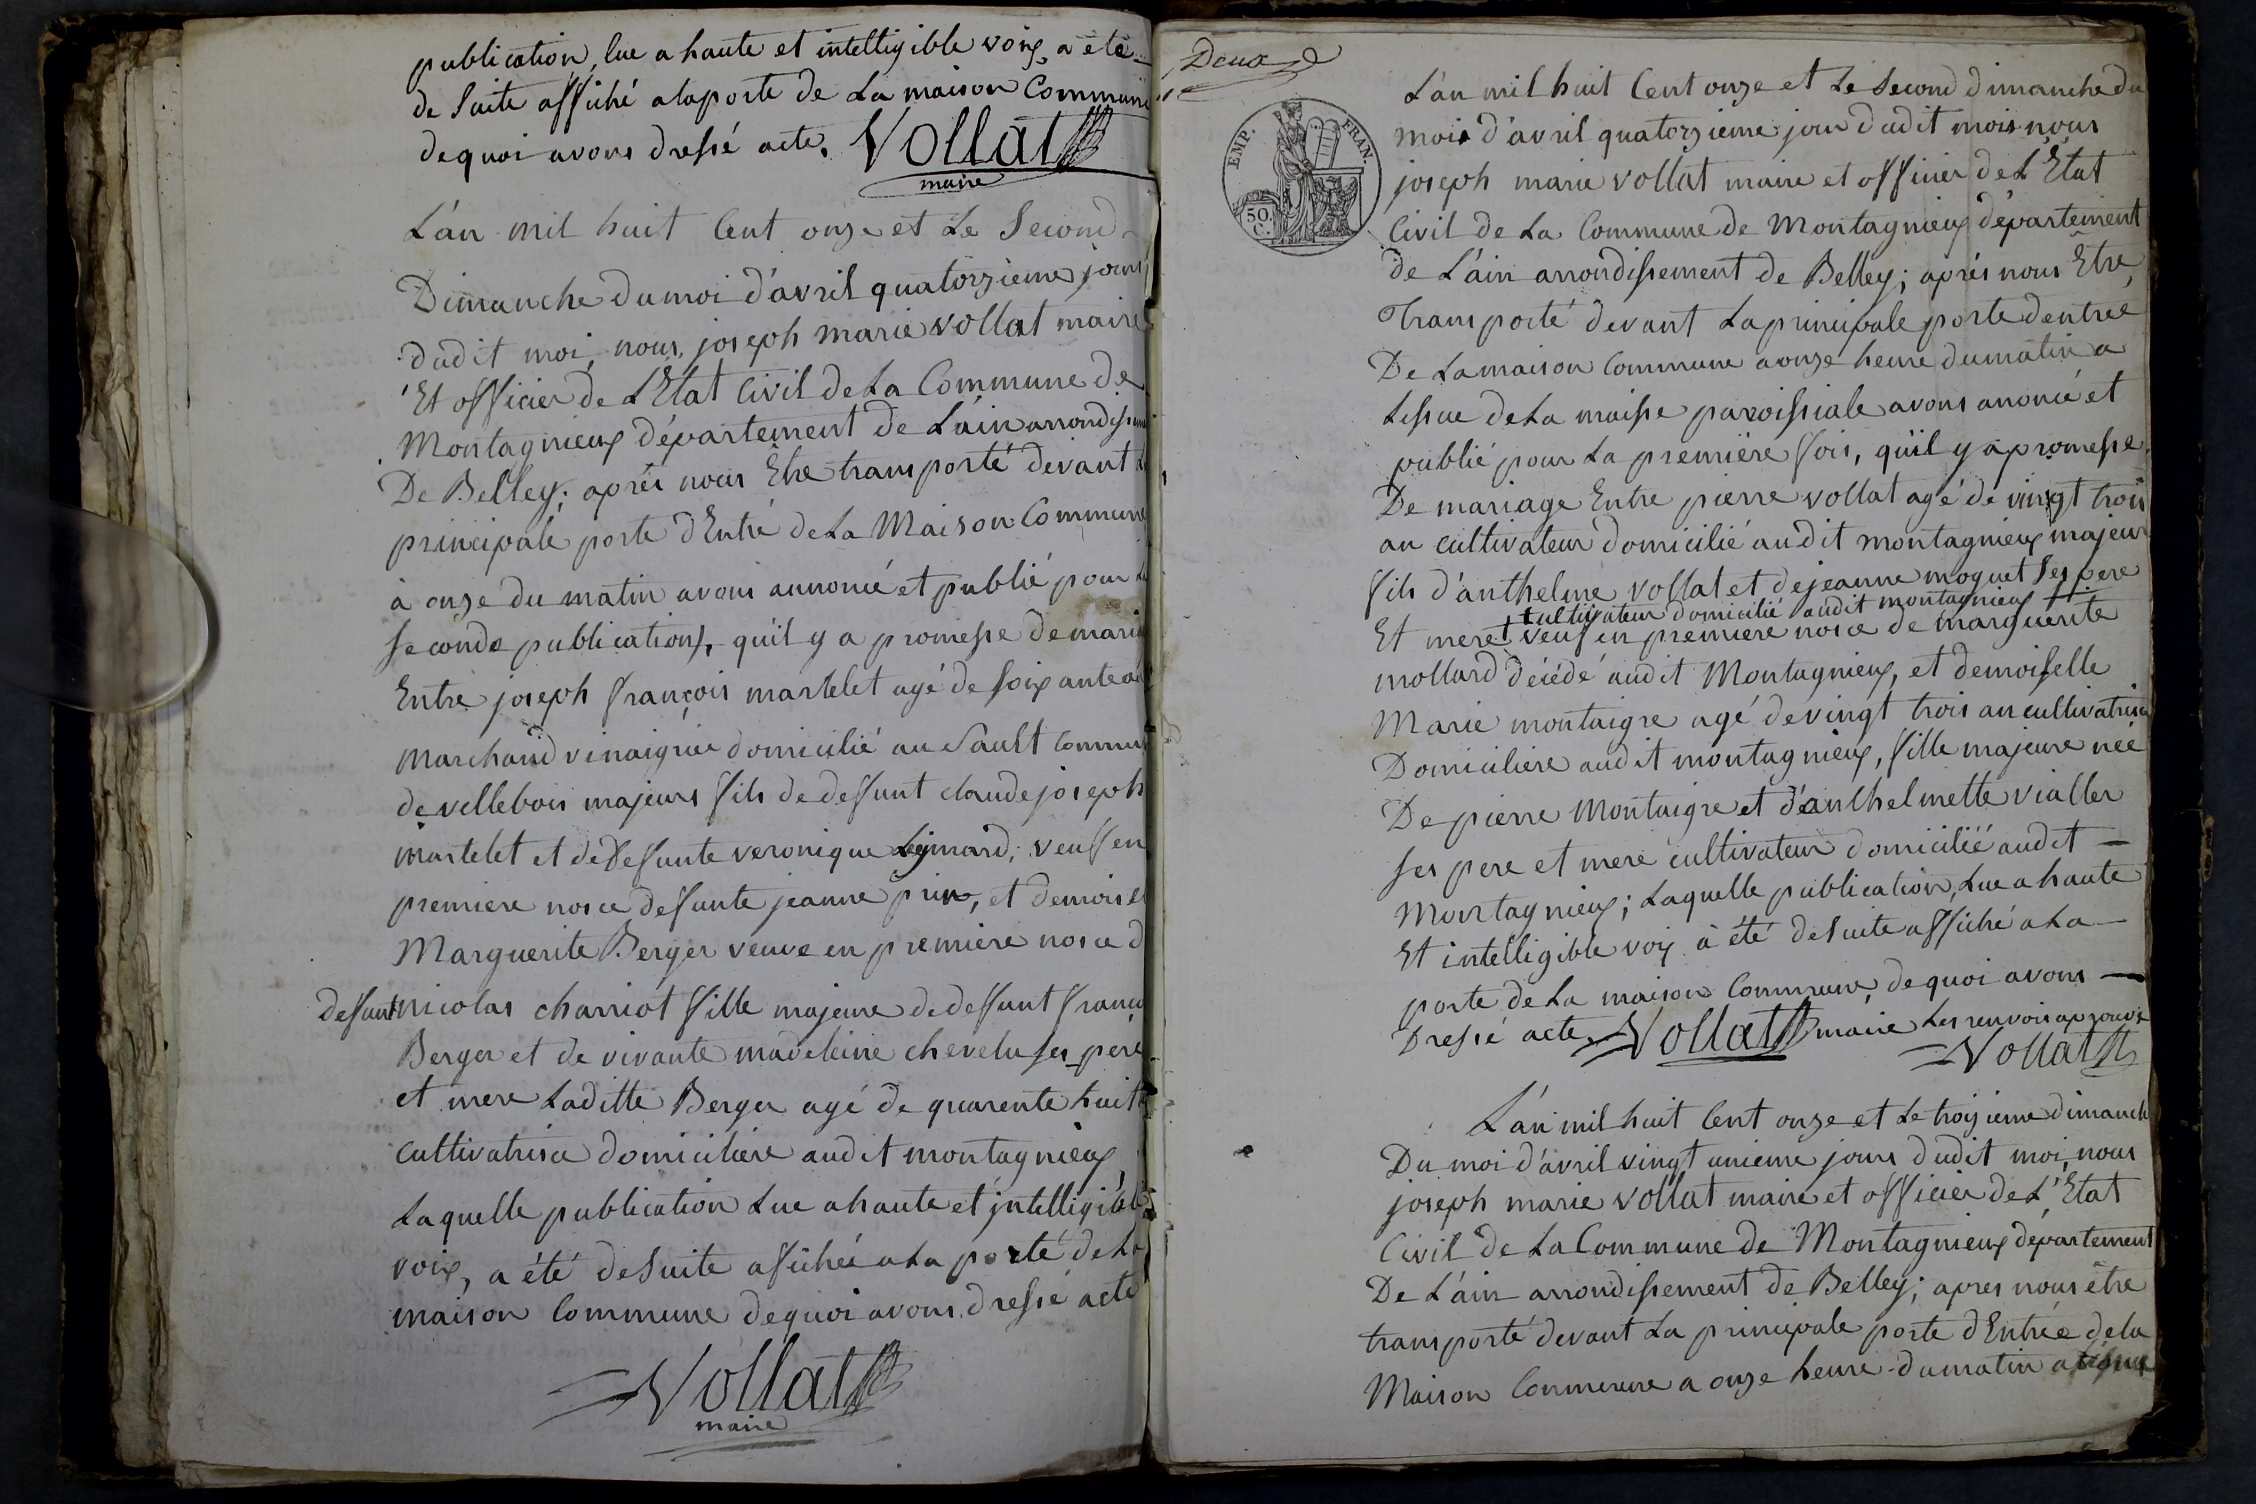 publication, lue a haute et intelligible voix, a été
de suite affiché a la porte de La maison Commune
de quoi avons dressé acte. Vollat
maire
L'an mil huit Cent onze et Le Second
Dimanche du moi d'avril quatorzieme jours
dudit moi, nous, joseph marie vollat maire
Et officier de L'Etat Civil de La Commune de
Montagnieux département de L'ain arrondissem
De Belley; aprés nous Etre transporté devant
principale porte d'Entré de La Maison Commune
à onze du matin avons annoncé et publié pour
seconde publication, qu'il y a promesse de maria
Entre joseph françois martelet agé de soixante
marchand vinaigrie domicilié au Sault Commu
de villebois majeurs fils de deffunt claude joseph
martelet et de deffunte veronique Leymard, veuf en
premiere nosce deffunte jeanne prin, et demoiselle
Marguerite Berger veuve en première nosce d
deffunt nicolas charriot fille majeure de deffunt franço
Berger et de vivante madeleine chevelu ses pere
et mere Laditte Berger agé de quarente huit
cultivatrisce domiciliére audit montagnieux
Laquelle publication Lue a haute et intelligible
voix, a été de suite afichée a La porte de La
maison Commune de quoi avons dressé acte
Vollat
maire
Deux
EMP. FRAN.
50. C.
L'an mil huit Cent onze et Le second dimanche du
mois d'avril quatorzieme jour dudit mois nous
joseph marie vollat maire et officier de L'Etat
Civil de La Commune de Montagnieux département
de L'ain arrondissement de Belley; aprés nous Etre
Transporté devant La principale porte dentrée
De La maison Commune a onze heure du matin a
Lissue de La maisse paroissiale avons anoncé et
publié pour La premiere fois, qu'il y a promesse
De mariage Entre pierre vollat agé de vingt trois
an cultivateur domicilié audit montagnieux majeur
fils d'anthelme vollat et de jeanne moguet ses pere
cultivateur domicilié audit montagnieux
Et mere veuf en premiere nosce de marguerite
mollard décédé audit Montagnieux, et demoiselle
Marie montaigre agé de vingt trois an cultivatrisce
Domiciliere audit montagnieux, fille majeure née
De pierre Montaigre et d'anthelmette vialler
ses pere et mere cultivateur domiciliée audit
Montagnieux; Laquelle publication, Lue a haute
Et intelligible voix à été de suite affiché a La
porte de La maison Commune, de quoi avons
Dressé acte. Vollat maire Les renvois aprouvé
Vollat
L'an mil huit Cent onze et Le troizieme dimanche
Du moi d'avril vingt unieme jours dudit moi, nous
joseph marie vollat maire et officier de L'Etat
Civil de La Commune de Montagnieux département
De L'ain arrondissement de Belley; apres nous être
transporté devant La principale porte d'Entrée de la
Maison Commune a onze heure du matin